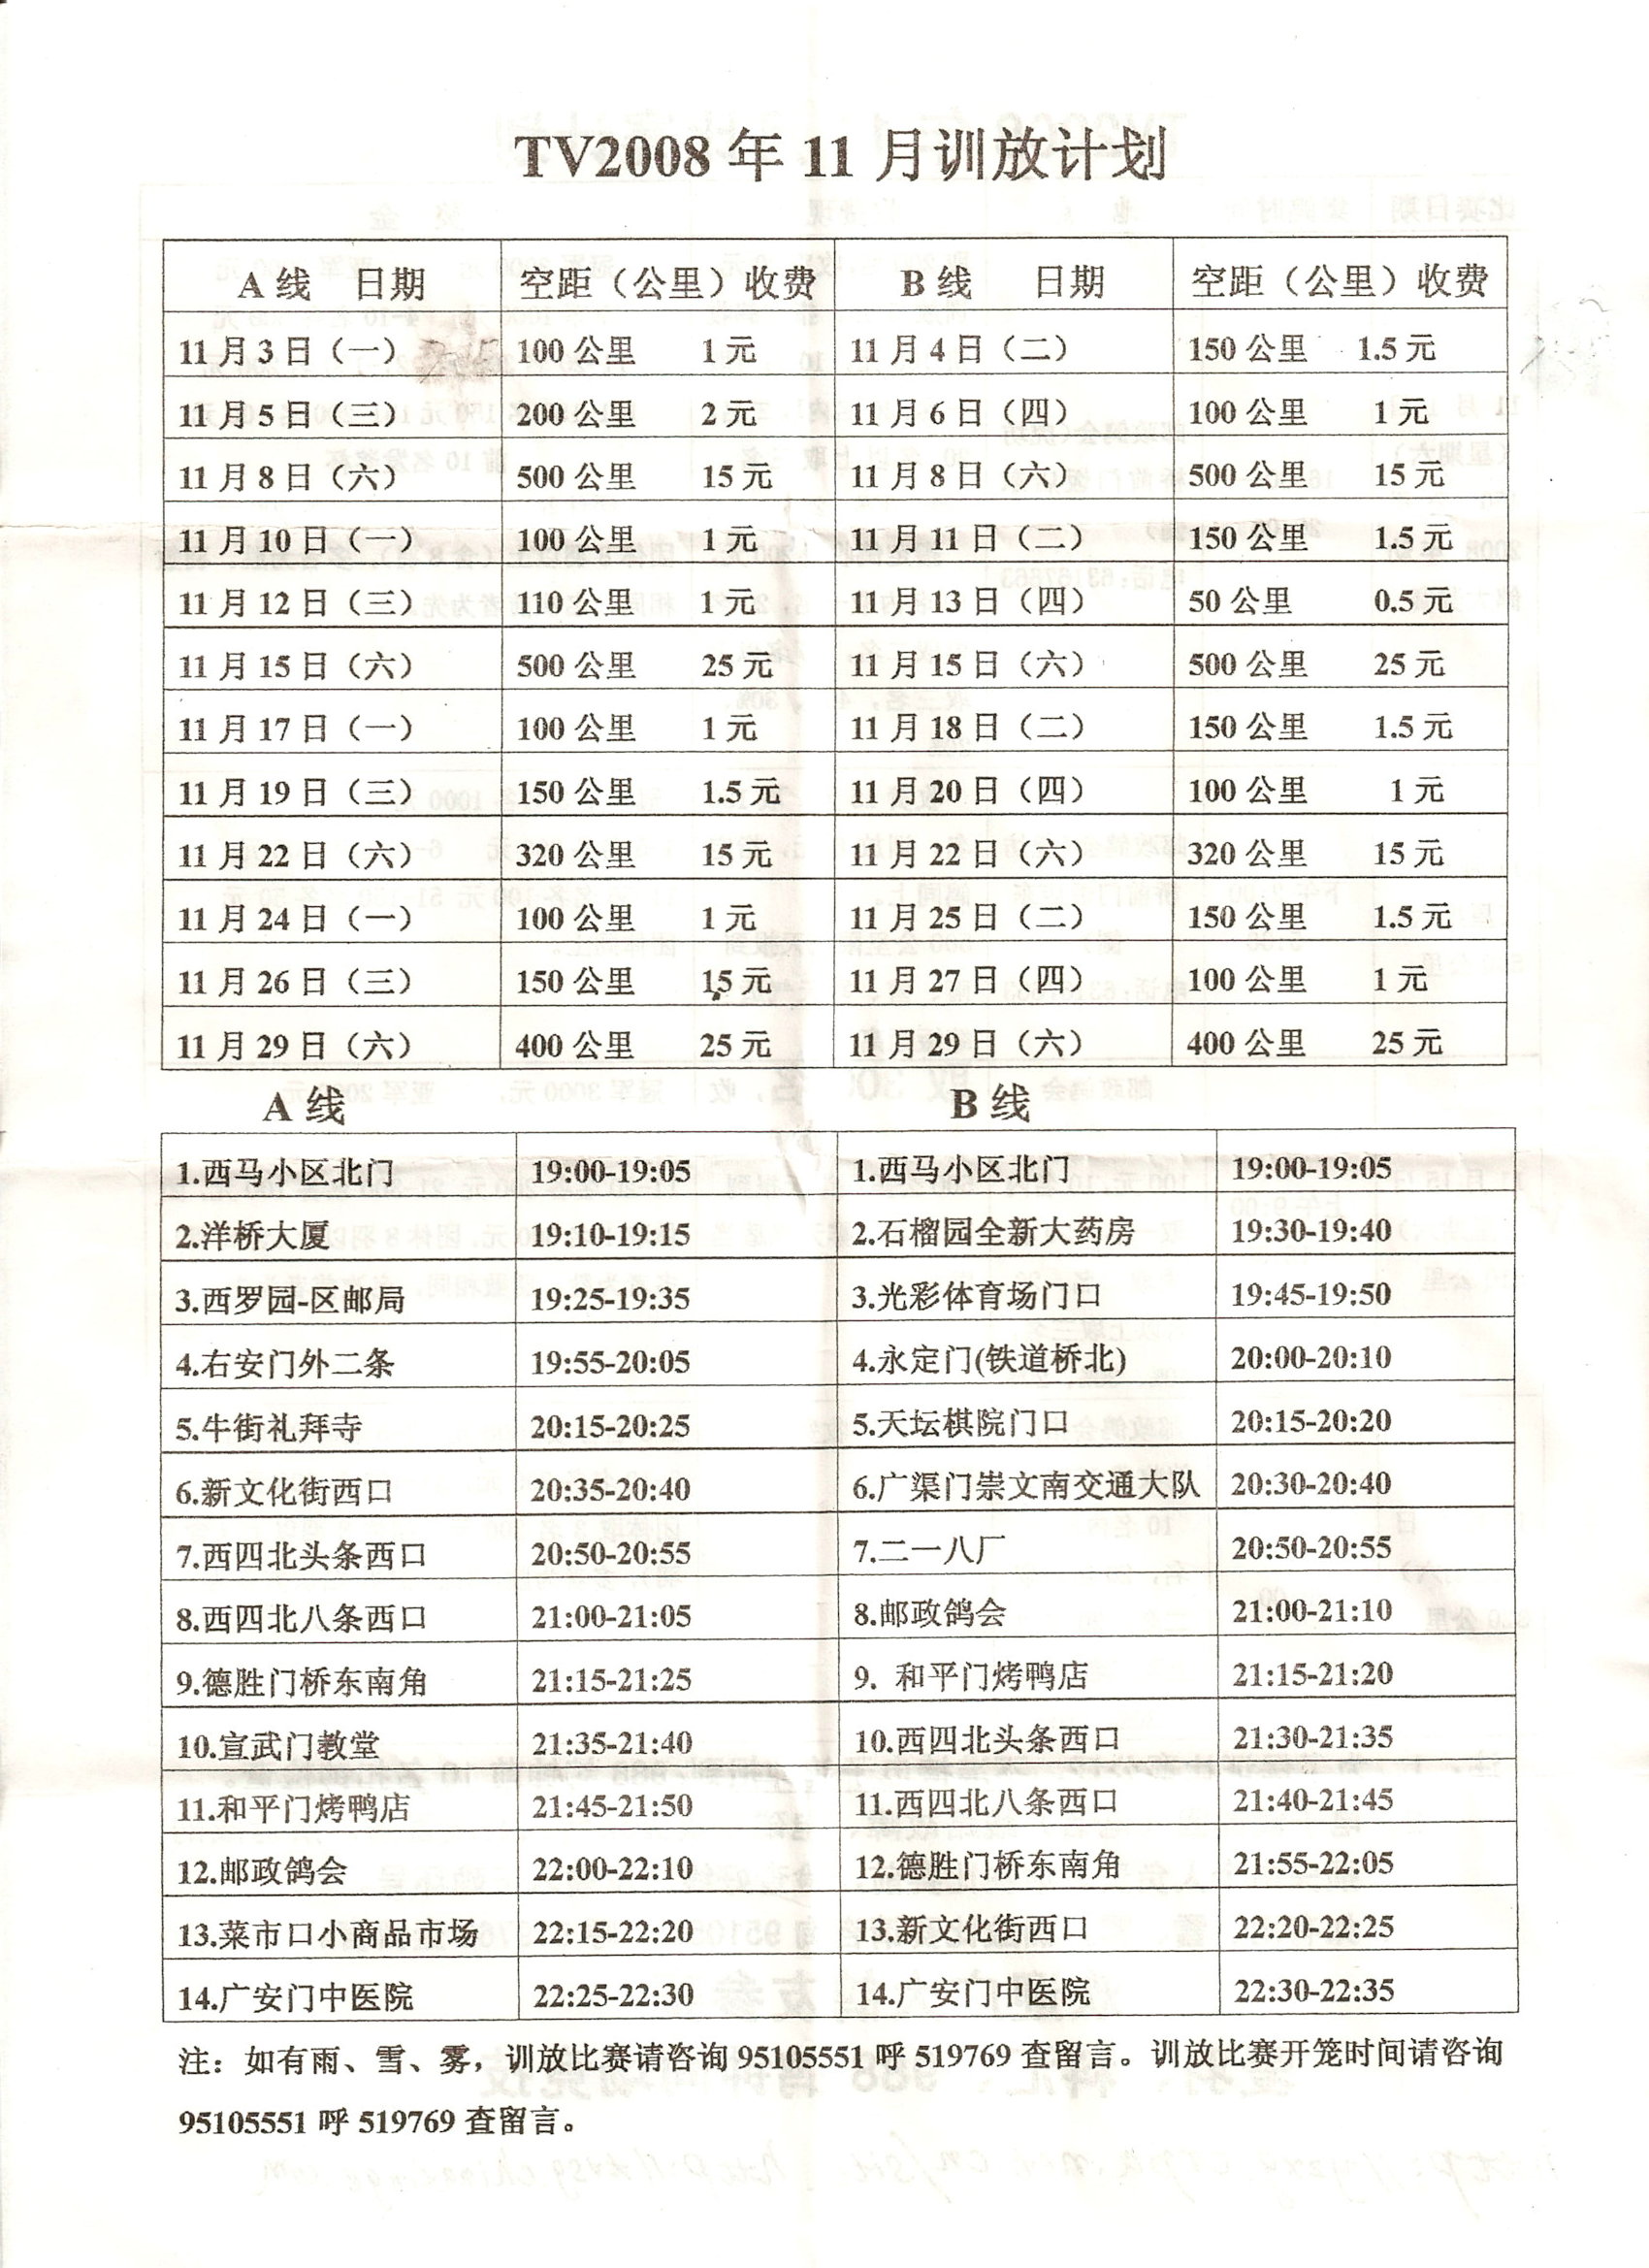 TV2008年11月训放计划
A线 日期 空距（公里）收费 B线 日期 空距（公里）收费
11月3日（一） 100公里 1元 11月4日（二） 150公里 1.5元
11月5日（三） 200公里 2元 11月6日（四） 100公里 1元
11月8日（六） 500公里 15元 11月8日（六） 500公里 15元
11月10日（一） 100公里 1元 11月11日（二） 150公里 1.5元
11月12日（三） 110公里 1元 11月13日（四） 50公里 0.5元
11月15日（六） 500公里 25元 11月15日（六） 500公里 25元
11月17日（一） 100公里 1元 11月18日（二） 150公里 1.5元
11月19日（三） 150公里 1.5元 11月20日（四） 100公里 1元
11月22日（六） 320公里 15元 11月22日（六） 320公里 15元
11月24日（一） 100公里 1元 11月25日（二） 150公里 1.5元
11月26日（三） 150公里 15元 11月27日（四） 100公里 1元
11月29日（六） 400公里 25元 11月29日（六） 400公里 25元
A线 B线
1.西马小区北门 19:00-19:05 1.西马小区北门 19:00-19:05
2.洋桥大厦 19:10-19:15 2.石榴园全新大药房 19:30-19:40
3.西罗园-区邮局 19:25-19:35 3.光彩体育场门口 19:45-19:50
4.右安门外二条 19:55-20:05 4.永定门(铁道桥北) 20:00-20:10
5.牛街礼拜寺 20:15-20:25 5.天坛棋院门口 20:15-20:20
6.新文化街西口 20:35-20:40 6.广渠门崇文南交通大队 20:30-20:40
7.西四北头条西口 20:50-20:55 7.二一八厂 20:50-20:55
8.西四北八条西口 21:00-21:05 8.邮政鸽会 21:00-21:10
9.德胜门桥东南角 21:15-21:25 9. 和平门烤鸭店 21:15-21:20
10.宣武门教堂 21:35-21:40 10.西四北头条西口 21:30-21:35
11.和平门烤鸭店 21:45-21:50 11.西四北八条西口 21:40-21:45
12.邮政鸽会 22:00-22:10 12.德胜门桥东南角 21:55-22:05
13.菜市口小商品市场 22:15-22:20 13.新文化街西口 22:20-22:25
14.广安门中医院 22:25-22:30 14.广安门中医院 22:30-22:35
注：如有雨、雪、雾，训放比赛请咨询95105551呼519769查留言。训放比赛开笼时间请咨询
95105551呼519769查留言。